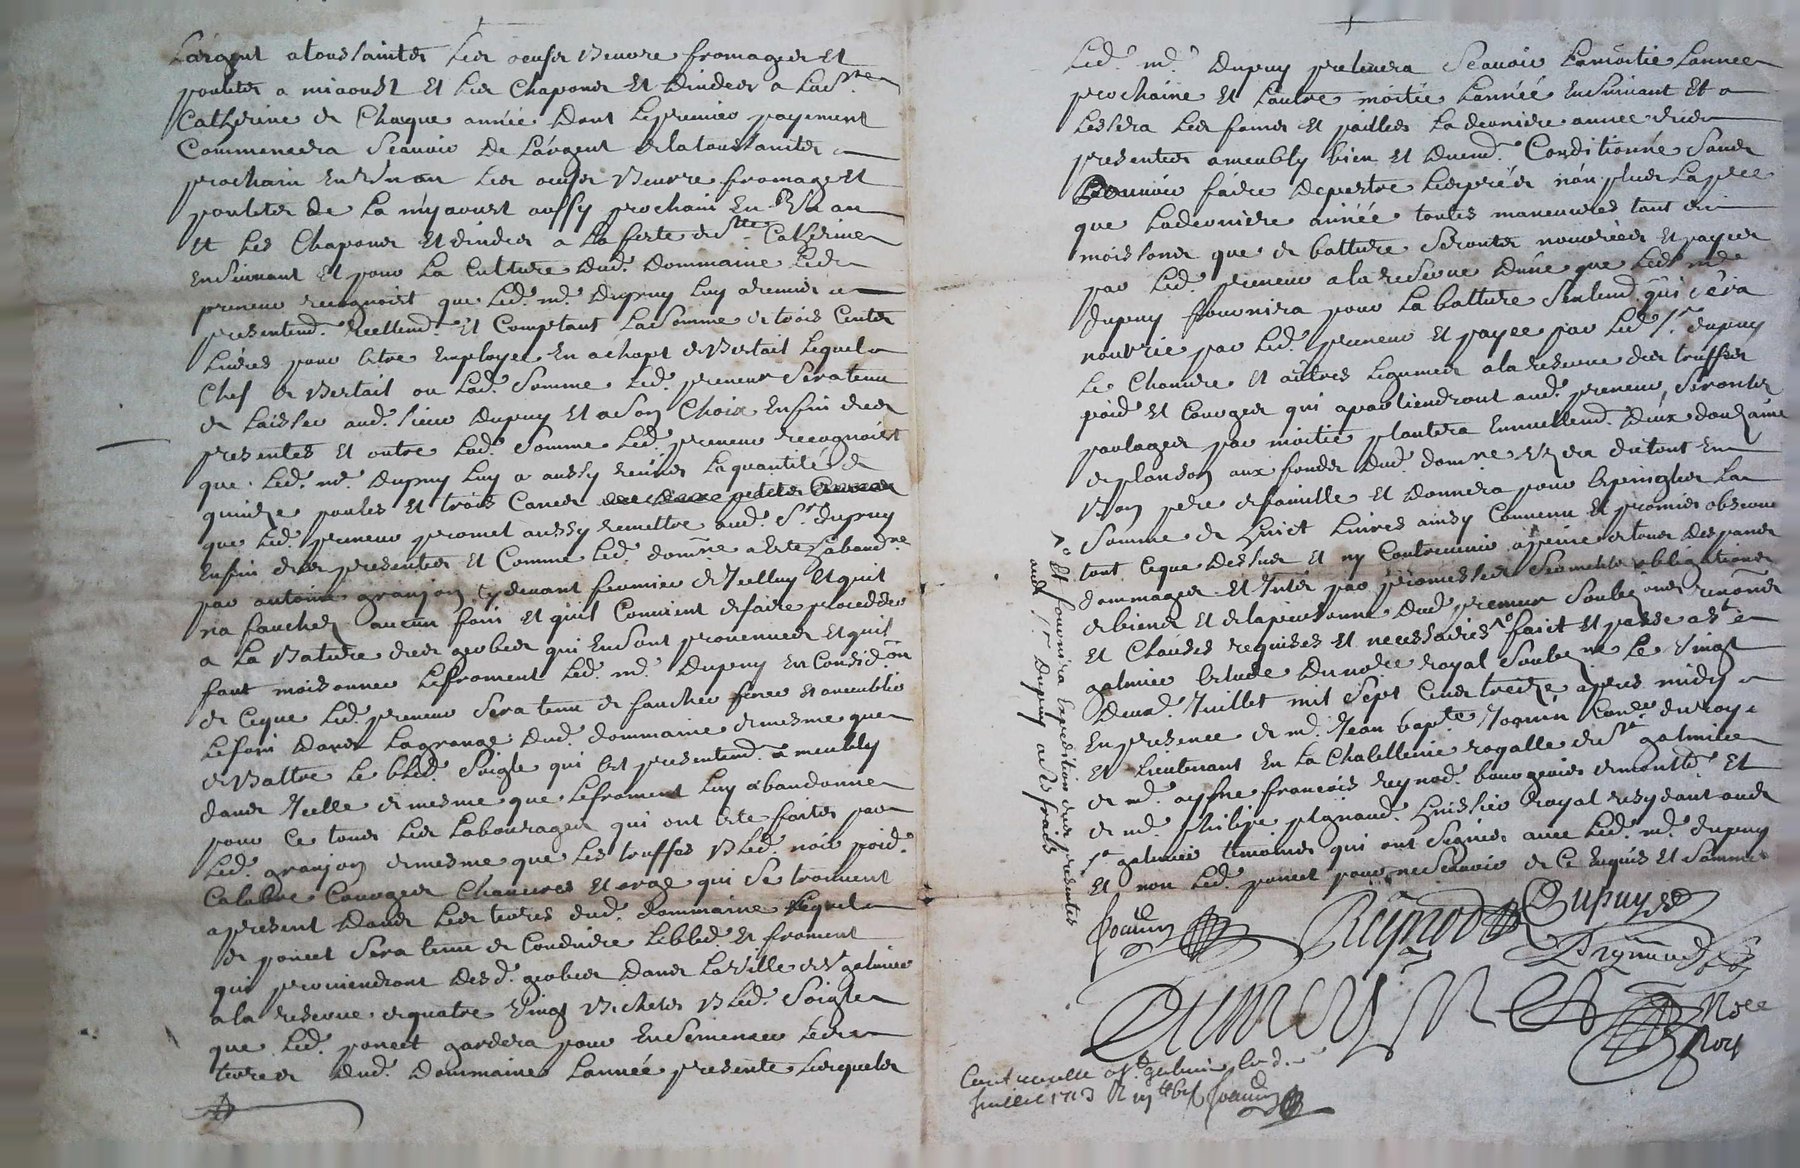 Largent a toussaintes Les oeufs Beurre fromages Et
poulets a miaoust Et Les Chapons Et Dindes a La Ste
Catherine de Chaque année Dont Le premier payement
Commencera Scauoir De Largent de la toussaintes
prochain En Un an Les oeufs Beurre fromage Et
poulets De La myaoust aussy prochain En Un an
Et Les Chapons Et dindes a La feste de Ste Catherine
Ensuiuant Et pour La Culture Dud. Dommaine Led.
preneur recognoist que Led. md. Dupuy Luy a remis
presentemd. reellemd. Et Comptant La Somme de trois Cents
Liures pour Estre Employee En achapt de Bestail Lequel
Chef de Bestail ou Lad. Somme Led. preneur Sera tenu
de Laisser aud. Sieur Dupuy Et a Son Choix Enfin des
presentes Et outre Lad. Somme Led. preneur recognoist
que Led. md. Dupuy Luy a aussy remis La quantité de
quinze poules Et trois Canes
que Led. preneur promet aussy remettre aud. Sr. Dupuy
Enfin des presentes Et Comme Led. domne a Esté
par antoine granjon Cy deuant fermier de Icelluy Et quil
na faucher aucun foin Et quil Conuient de faire proceder
a La Bature des gerbes qui En Sont prouenues Et quil
faut moissonner Le froment Led. md. Dupuy En Considon
de Ce que Led. preneur Sera tenu de faucher fener Et ameublir
Le foin Dans La grange Dud. dommaine de mesme que
de Battre Le bled. Soigle qui Est presentemd. ameubly
dans Icelle de mesme que Le froment Luy abandonne
pour Ce tous Les Labourages qui ont Esté faites par
Led. granjon de mesme que Les truffes Bled. noir poid.
Calabre Courges Chanures Et orge qui Se trouuent
apresent Dans Les terres dud. Dommaine Lequel
de poncet Sera tenu de Conduire Le bled. Et froment
qui prouiendront Desd. gerbes Dans La Ville de St galmier
a la reserue de quatre Vingt Bichets Bled. Soigle
que Led. poncet gardera pour Ensemencer Les
terres Dud. Dommaine Lannée presente Lesquels
Led. md. Dupuy preleuera Scauoir La moitie Lannee
prochaine Et Lautre moitie Lannée Ensuiuant Et
Lessera Les foins Et pailles La derniere annee des
presentes ameubly bien Et Duemd. Conditionné Sans
pouuoir faire Depestre Les prés non plus La pce
que La derniere année toutes maneuures tant de
moissons que de batture Seronts nourries Et payees
par Led. preneur a la reserue Dune que Led. md.
dupuy fournira pour La batture Seulemd. qui Sera
nourrie par Led. preneur Et payee par Led. Sr. dupuy
Le Chanure Et autres Legumes a la reserue des truffes
poid Et Courges qui apartiendront aud. preneur Seronts
partages par moitie plantera Ennuellemd. Deux douzaine
de planson aux fonds Dud. domne Uzera du tout En
Bon pere de famille Et Donnera pour Epingles La
Somme de huict Liures ainsy Conuenu Et promis obseruer
tout Ce que Dessus Et ny Contreuenir a peine de tous Despands
dommages Et Intes par promesses Sermants obligations
de biens Et de la personne Dud. preneur Soubzmis renons
Et Clauses requises Et necessaires fait Et passé a St
galmier Estude Du nore royal Soubzne Le Vingt
Deux. Juillet mil Sept Cens treize apres midy
En presence de md. Jean bapte Joanin Coner du roy
Et Lieutenant En La Chastellenie royalle de St galmier
de md. francois reynod. bourgeois de montbd. Et
de md. philipe pignaud. huissier royal resydant aud.
St galmier temoins qui ont Signés auec Led. md. dupuy
Et non Led. poncet pour ne Scauoir de Ce Enquis Et Sommé
Et fournira Expedition des presentes
aud. Sr Dupuy a Ses fraits
Joanin Reynod Dupuy
Pignaud
Nore
Roy
Controolle a St galmier Le d.
Juillet 1713 R Joanin